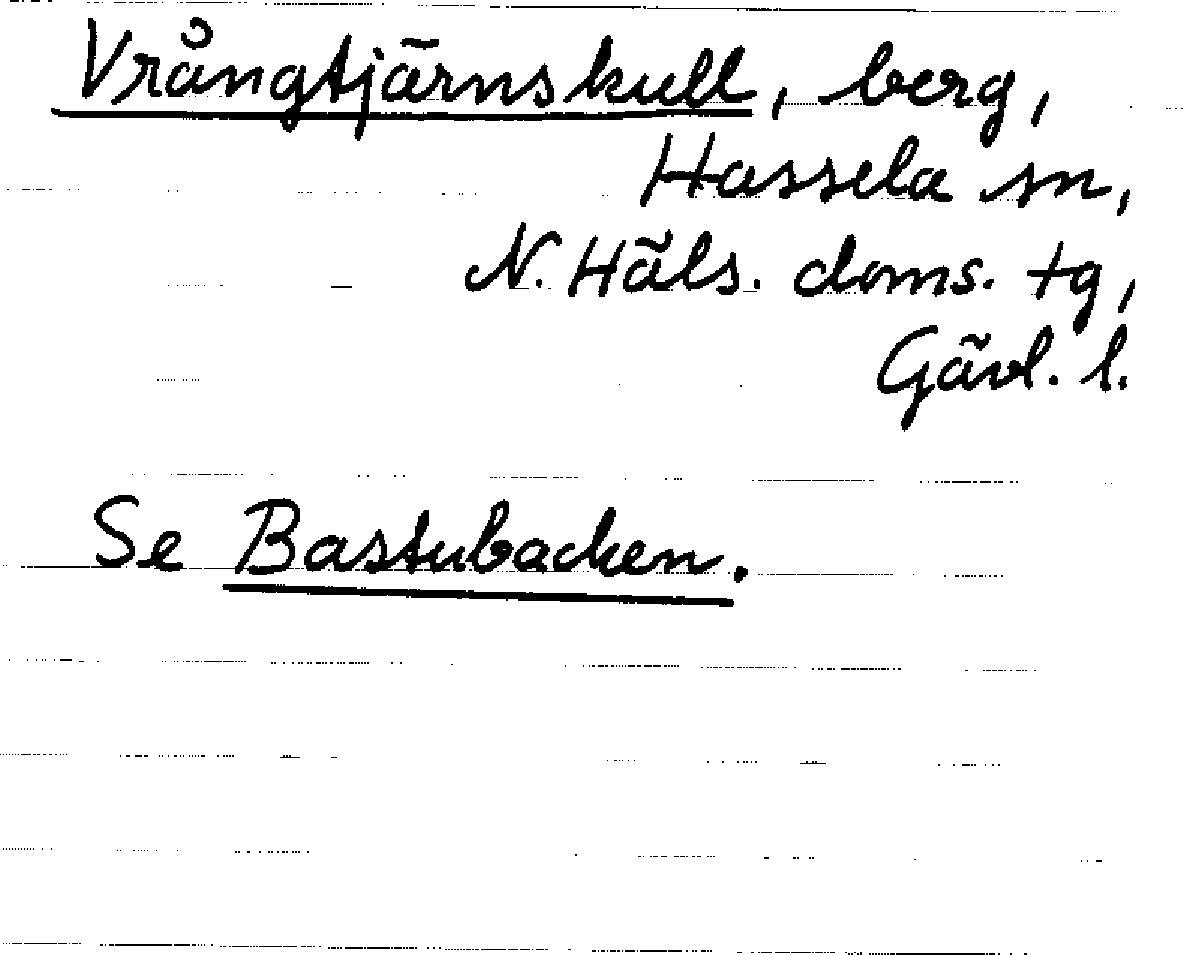 Vrångtjärnskull, berg,
Hassela sn,
N. Häls. doms. tg,
Gävl. l.
Se Bastubacken.